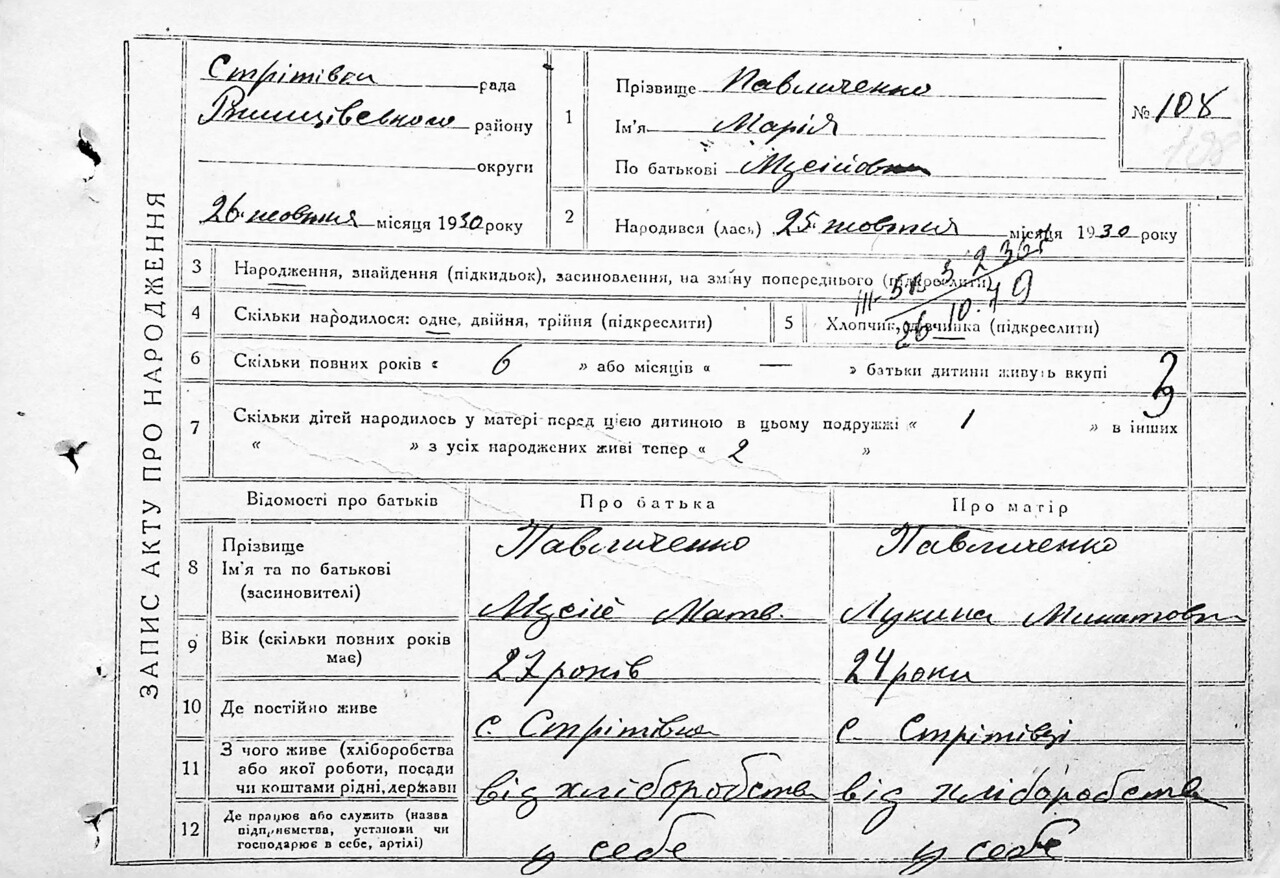 ЗАПИС АКТУ ПРО НАРОДЖЕННЯ
Стрітівка рада
району
округи
26 жовтня місяця 1930 року
1 Прізвище Павличенко
Ім'я Марія
По батькові Мусіївна
№ 108
2 Народився (лась) 25 жовтня місяця 1930 року
3 Народження, знайдення (підкидьок), засиновлення, на зміну попереднього (підкреслити)
4 Скільки народилося: одне, двійня, трійня (підкреслити)
5 Хлопчик, дівчинка (підкреслити)
26 10
6 Скільки повних років « 6 » або місяців « — » батьки дитини живуть вкупі
7 Скільки дітей народилось у матері перед цією дитиною в цьому подружжі « 1 » в інших
« » з усіх народжених живі тепер « 2 »
Відомості про батьків Про батька Про матір
8 Прізвище Павличенко Павличенко
Ім'я та по батькові
(засиновителі) Мусій Матв. Лукина
9 Вік (скільки повних років
має) 27 років 24 роки
10 Де постійно живе с. Стрітівка с. Стрітівці
11 З чого живе (хліборобства
або якої роботи, посади
чи коштами рідні, держави від хліборобства від хліборобства
12 Де працює або служить (назва
підприємства, установи чи
господарює в себе, артілі) у себе у себе